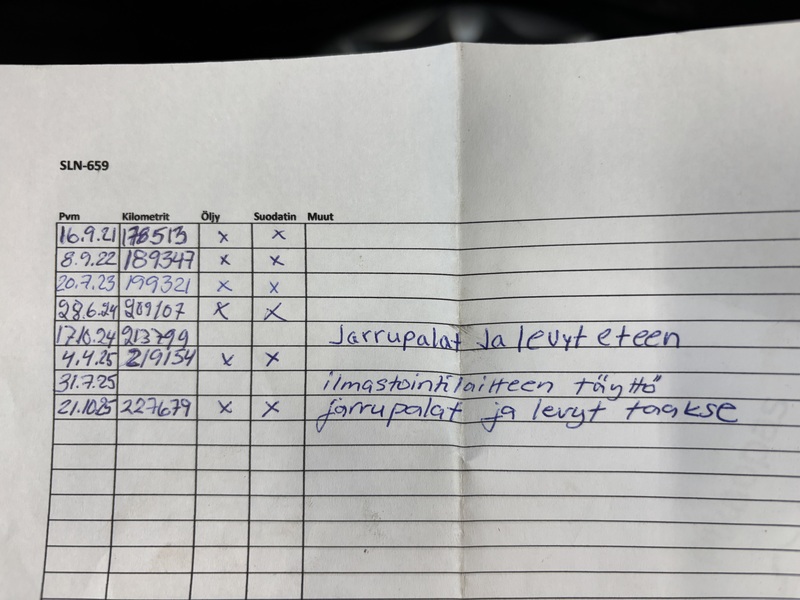 SLN-659
Pvm Kilometrit Öljy Suodatin Muut
16.9.21 178513 x x
8.9.22 189347 x x
20.7.23 199321 x x
28.6.24 209107 x x
17.10.24 213799 Jarrupalat ja levyt eteen
4.4.25 219154 x x
31.7.25 ilmastointilaitteen täyttö
21.10.25 227679 x x jarrupalat ja levyt taakse